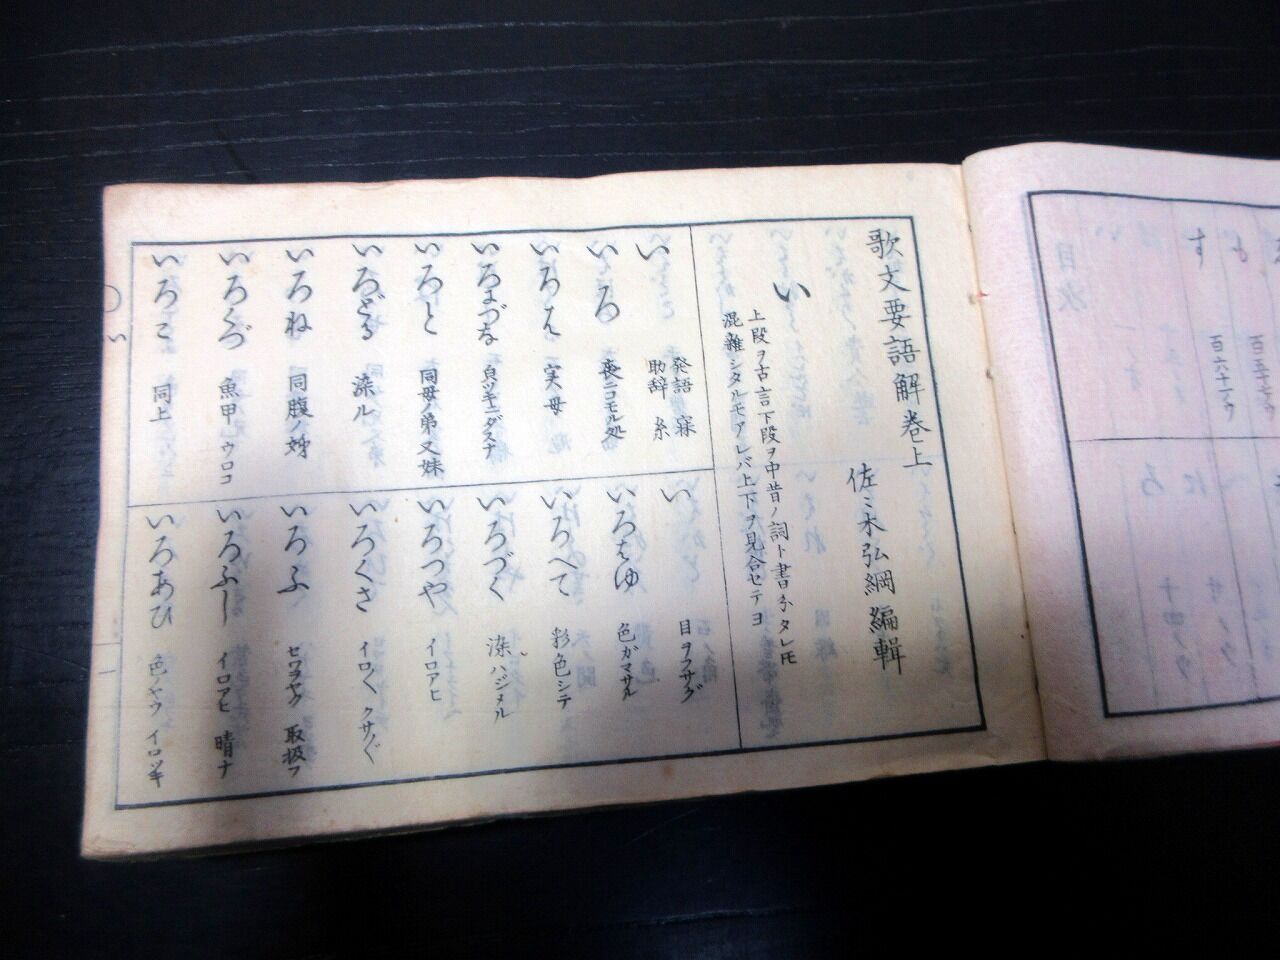 す
百六十一ノウ
目次
歌文要語解巻上
佐ミ木弘綱編輯
い
上段ヲ古言下段ヲ中昔ノ詞ト書分タレ𪜈
混雑シタルモアレバ上下ヲ見合セテヨ
い 発語 寐
助辞 糸
いろ 夜ニコモル処
いろは 実ノ母
いろと 同母ノ弟又妹
いろどる 染ル
いろね 同腹ノ姉
いろくづ 魚甲 ウロコ
いろこ 同上
い 目ヲフサグ
いろはゆ 色ガマサル
いろへて 彩色シテ
いろづく 染ハジメル
いろつや イロアヒ
いろくさ イロ〱 クサ〲
いろふ セワヲヤク 取扱フ
いろふし イロアヒ 晴ナ
いろあひ 色ヤウ イロツキ
い
一